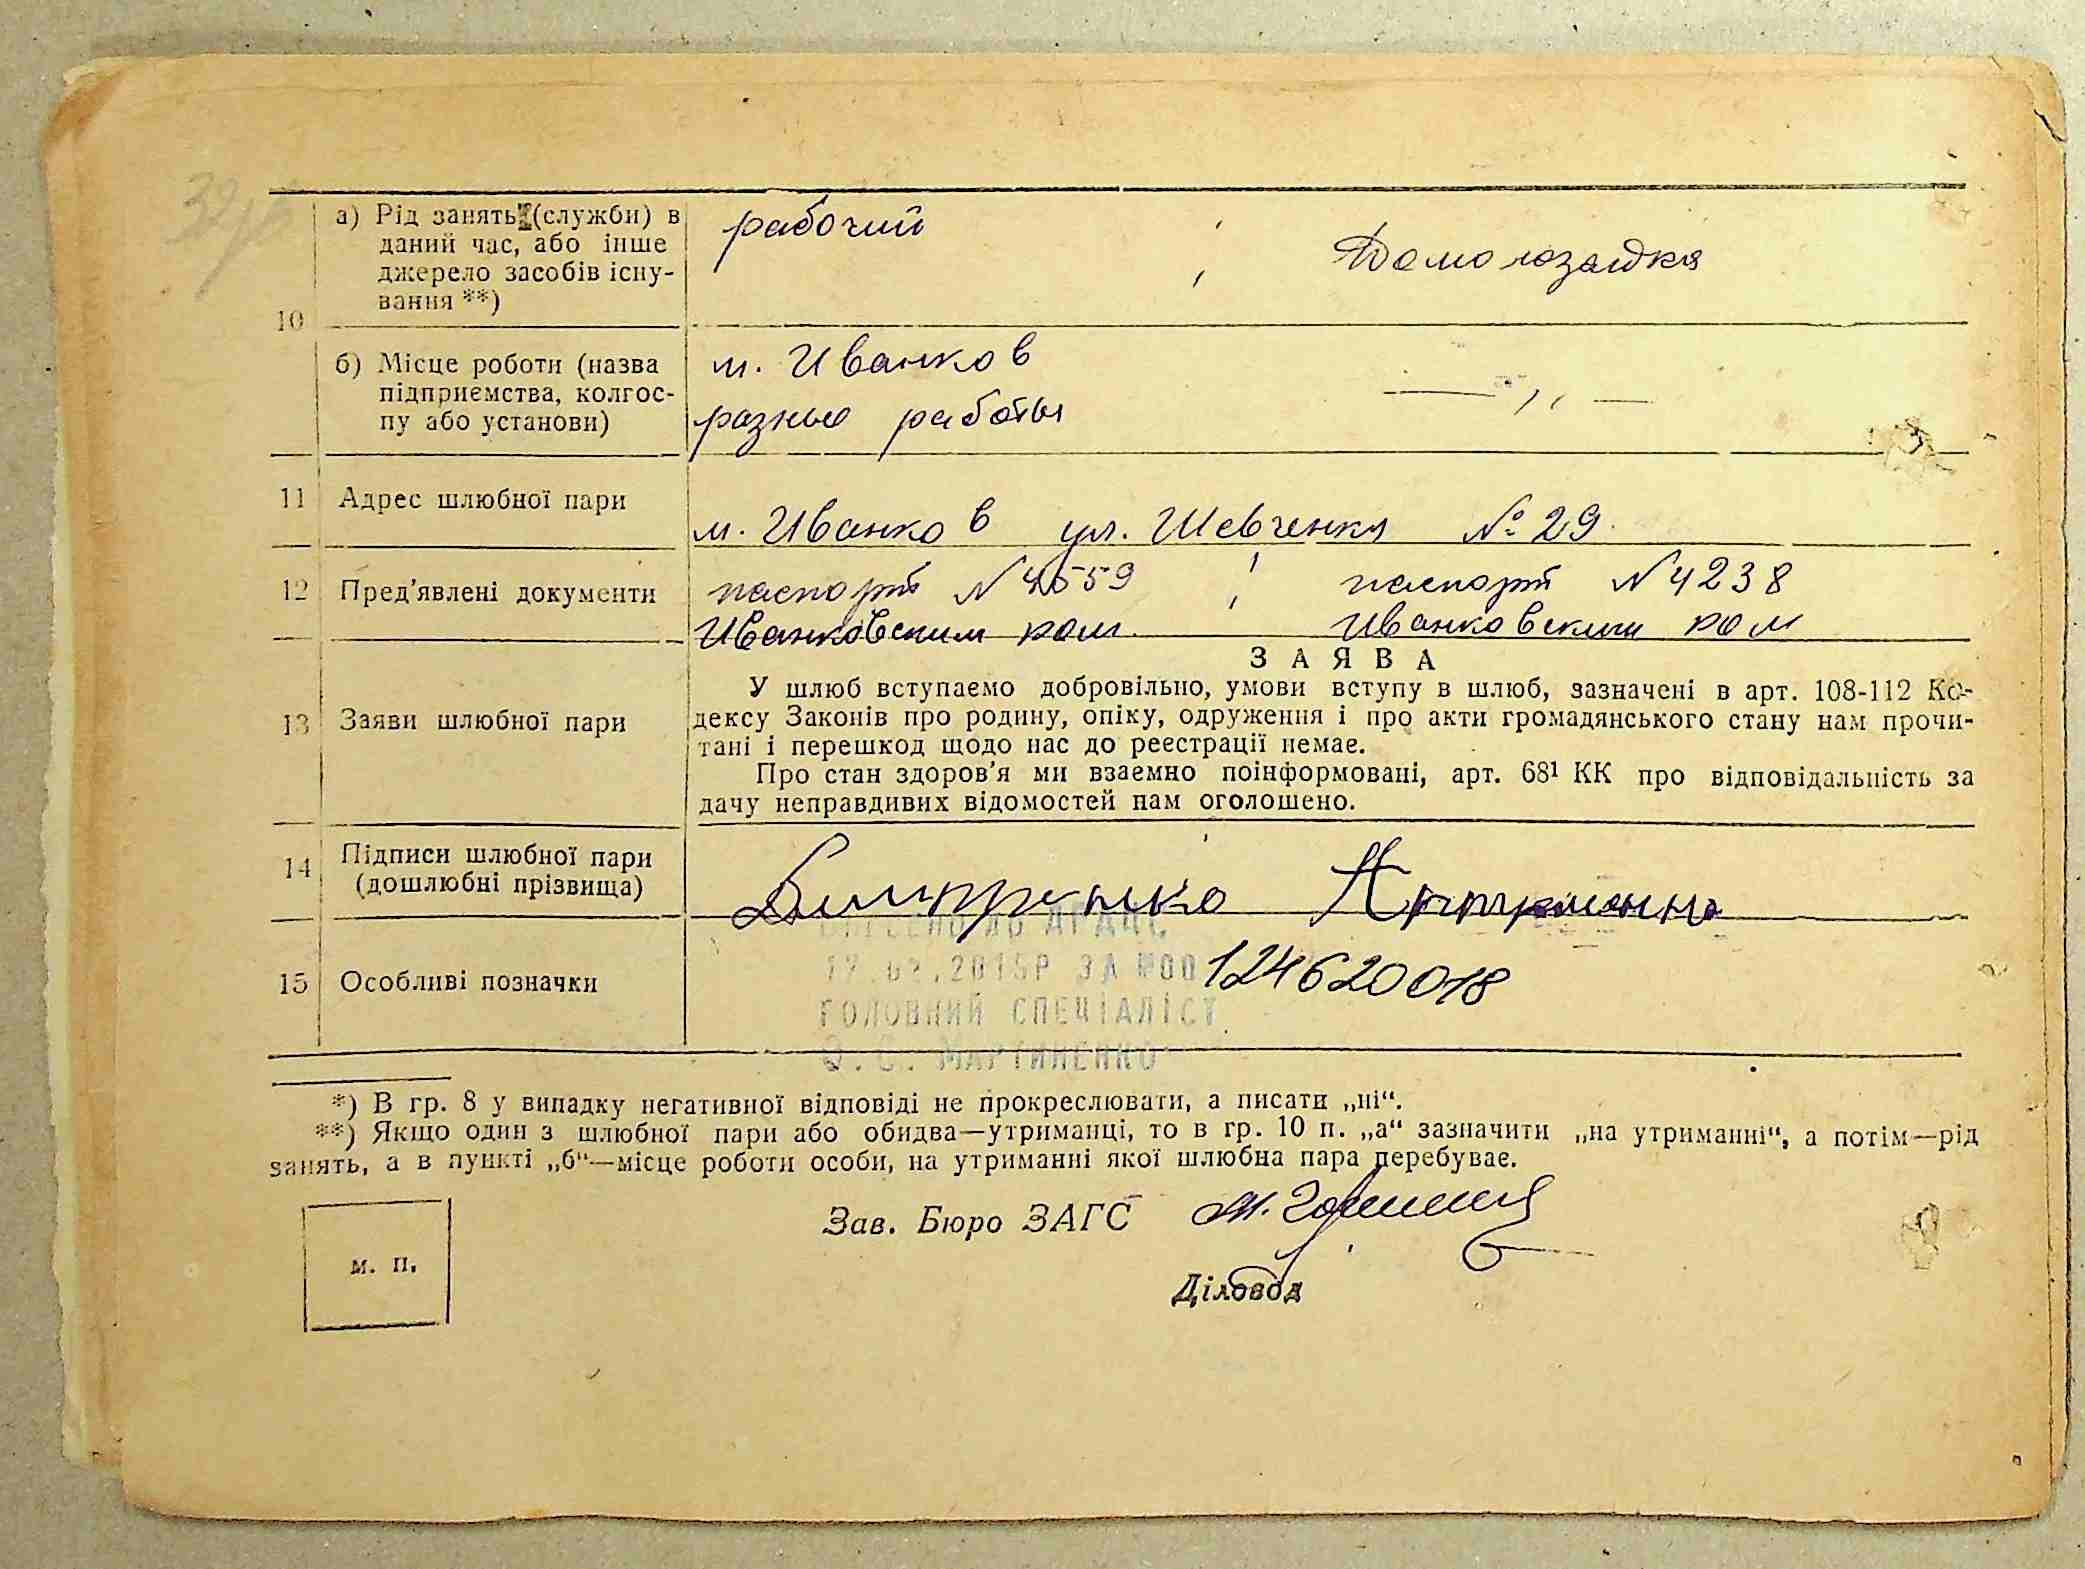 а) Рід занять (службы) в
даний час, або інше
джерело засобів існу-
вання **)
рабочий
Домохозяйка
10
б) Місце роботи (назва
підприємства, колгос-
пу або установи)
м. Иванков
разные работы
— ,, —
11 Адрес шлюбної пари
м. Иванков ул. Шевченка № 29
12 Пред'явлені документи
паспорт № 4559
паспорт № 4238
Иванковским ром
Иванковским ром
ЗАЯВА
13 Заяви шлюбної пари
У шлюб вступаємо добровільно, умови вступу в шлюб, зазначені в арт. 108-112 Ко-
дексу Законів про родину, опіку, одруження і про акти громадянського стану нам прочи-
тані і перешкод щодо нас до реєстрації немає.
Про стан здоров'я ми взаємно поінформовані, арт. 68¹ КК про відповідальність за
дачу неправдивих відомостей нам оголошено.
14 Підписи шлюбної пари
(дошлюбні прізвища)
ВНЕСЕНО ДО ДРАЦС
2015Р ЗА №00124620018
15 Особливі позначки
ГОЛОВНИЙ СПЕЦІАЛІСТ
О.С. МАРТИНЕНКО
*) В гр. 8 у випадку негативної відповіді не прокреслювати, а писати „ні“.
**) Якщо один з шлюбної пари або обидва—утриманці, то в гр. 10 п. „а“ зазначити „на утриманні“, а потім—рід
занять, а в пункті „б“—місце роботи особи, на утриманні якої шлюбна пара перебуває.
Зав. Бюро ЗАГС
м. п.
Діловод